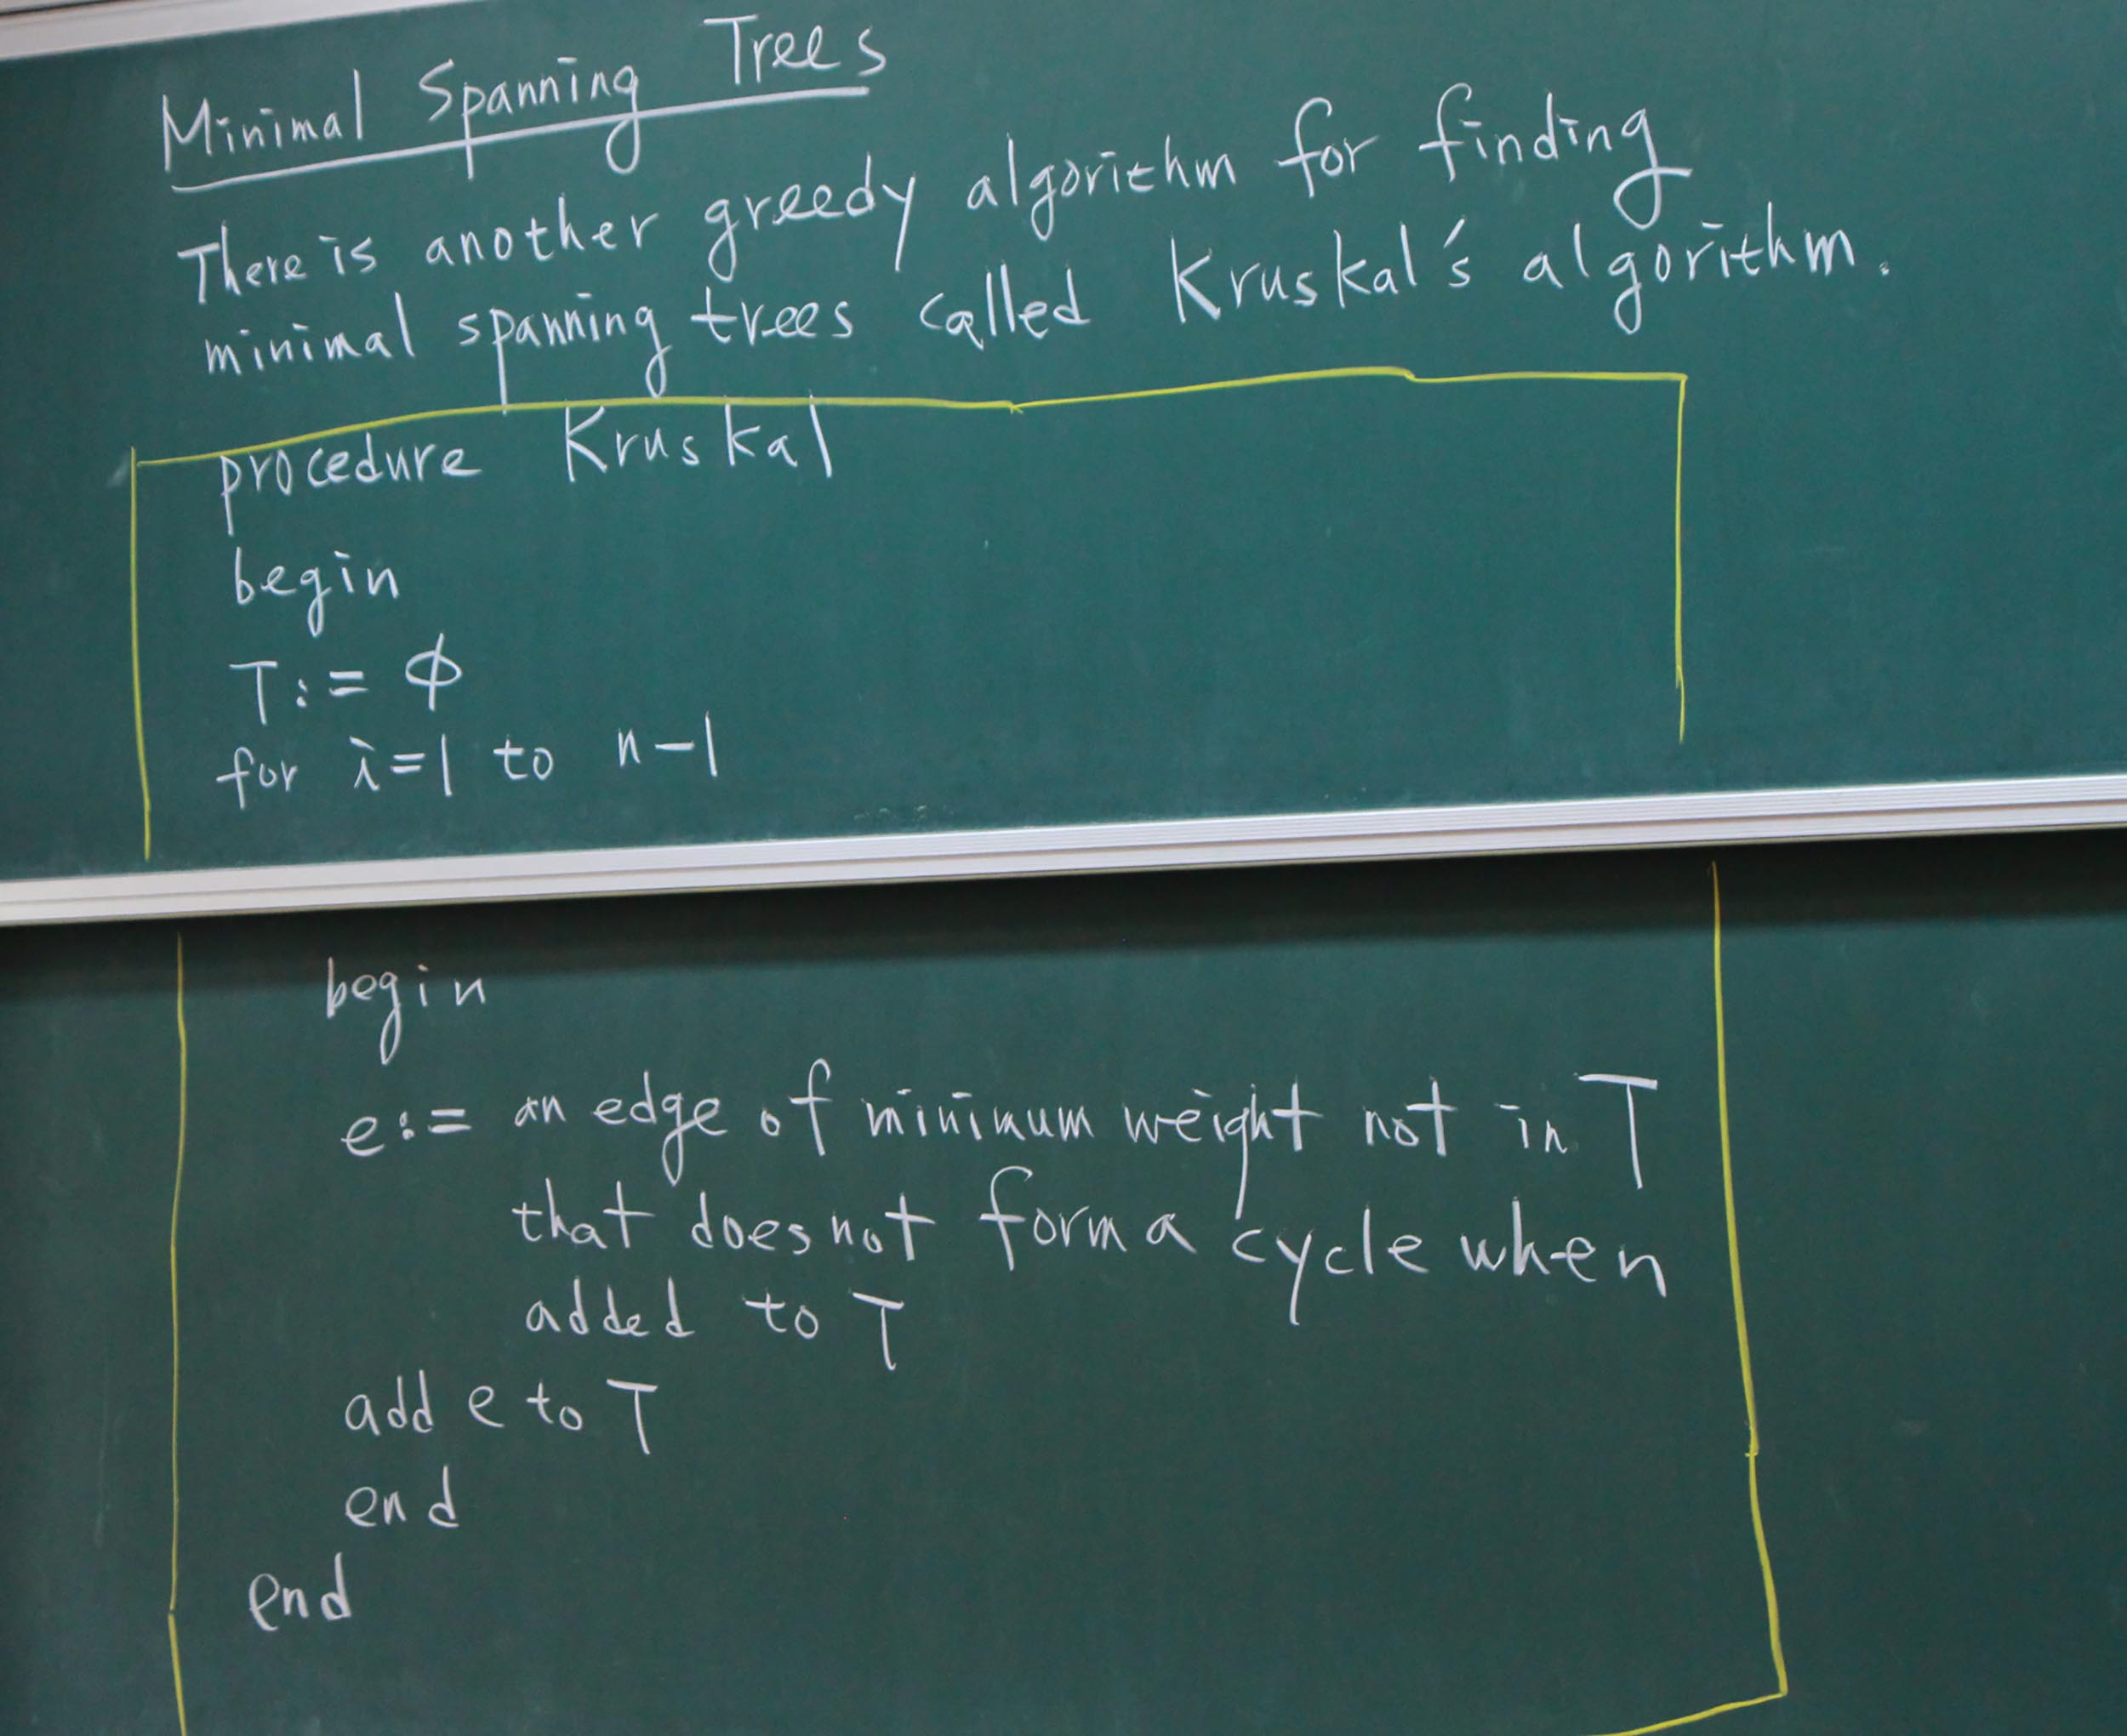 Minimal Spanning Trees
There is another greedy algorithm for finding
minimal spanning trees called Kruskal's algorithm.
procedure Kruskal
begin
T:= ϕ
for i=1 to n-1
begin
e:= an edge of minimum weight not in T
that does not form a cycle when
added to T
add e to T
end
end